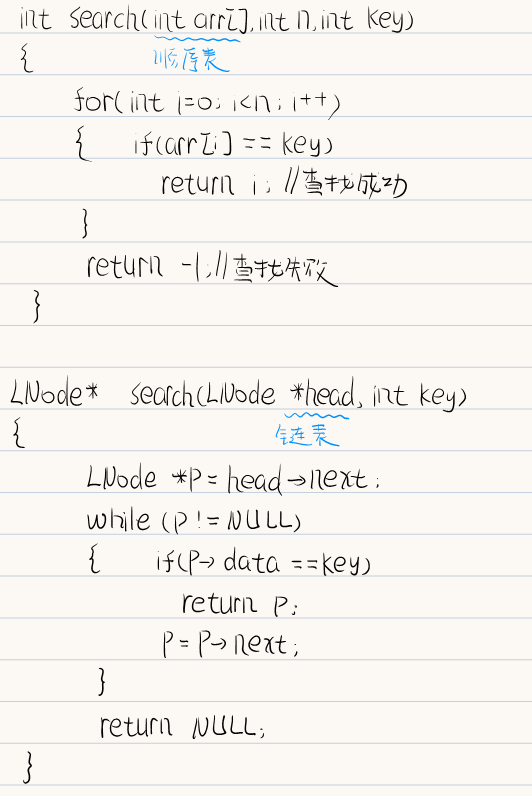 int search(int arr[],int n,int key)
{
顺序表
for(int i=0; i<n; i++)
{ if(arr[i] == key)
return i; //查找成功
}
return -1;//查找失败
}
LNode* search(LNode *head, int key)
{
链表
LNode *p = head→next;
while (p != NULL)
{ if(p→ data ==key)
return p;
p = p→next;
}
return NULL;
}